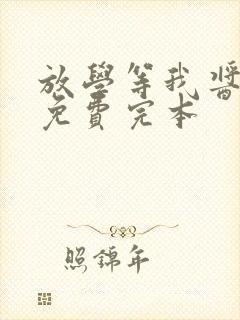 放學等我醬
免費完本
照錦年